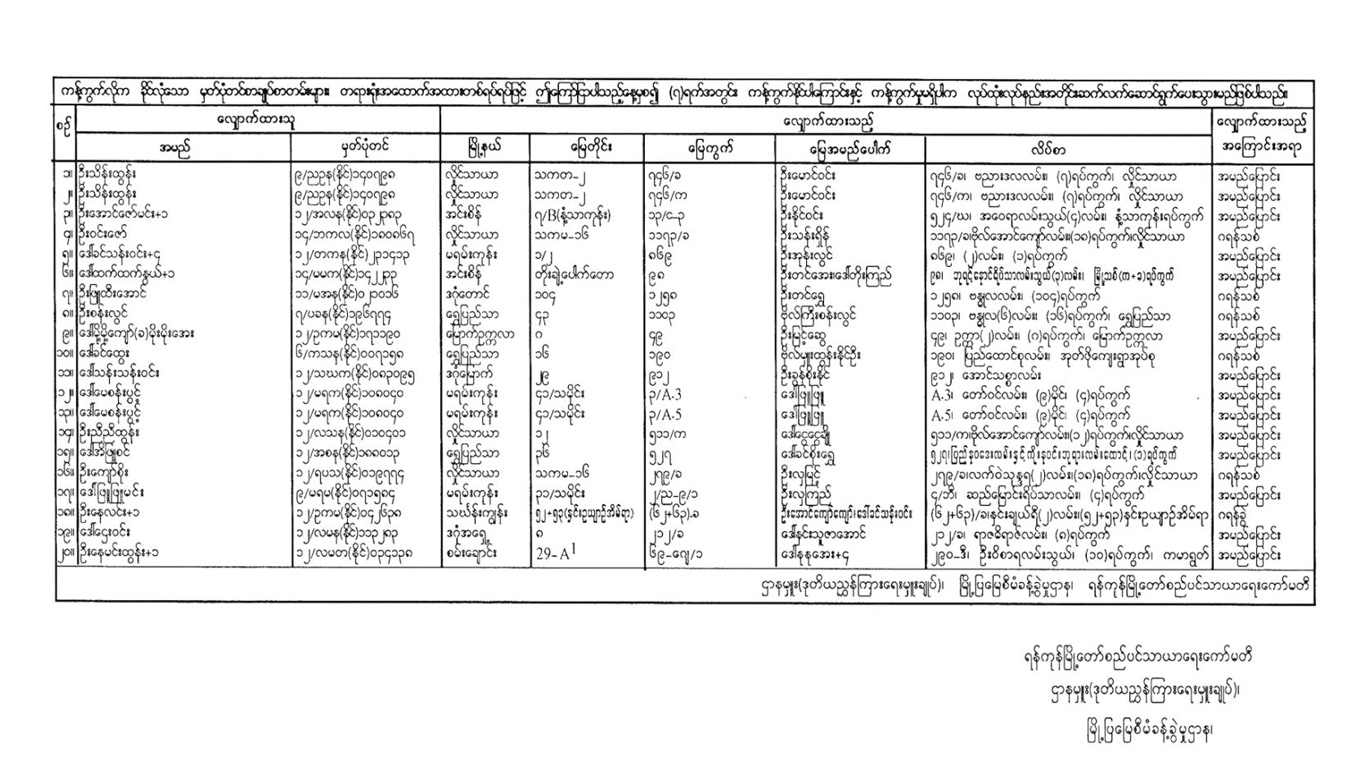 ကန့်ကွက်လိုက ခိုင်လုံသော မှတ်ပုံတင်စာချုပ်စာတမ်းများ၊ တရားရုံးအထောက်အထားတစ်ရပ်ရပ်ဖြင့် ဤကြော်ငြာပါသည့်နေ့မှစ၍ (၇)ရက်အတွင်း ကန့်ကွက်နိုင်ပါကြောင်းနှင့် ကန့်ကွက်မှုမရှိပါက လုပ်ထုံးလုပ်နည်းအတိုင်းဆက်လက်ဆောင်ရွက်ပေးသွားမည်ဖြစ်ပါသည်။
စဉ် လျှောက်ထားသူ လျှောက်ထားသည့် လျှောက်ထားသည့် အကြောင်းအရာ
အမည် မှတ်ပုံတင် မြို့နယ် မြေတိုင်း မြေကွက် မြေအမည်ပေါက် လိပ်စာ
၁။ ဦးသိန်းထွန်း ၉/ညဥန(နိုင်)၁၄၀၇၉၈ လှိုင်သာယာ သကတ-၂ ၇၄၆/ခ ဦးမောင်ဝင်း ၇၄၆/ခ၊ ဗညားဒလလမ်း၊ (၇)ရပ်ကွက်၊ လှိုင်သာယာ အမည်ပြောင်း
၂။ ဦးသိန်းထွန်း ၉/ညဥန(နိုင်)၁၄၀၇၉၈ လှိုင်သာယာ သကတ-၂ ၇၄၆/က ဦးမောင်ဝင်း ၇၄၆/က၊ ဗညားဒလလမ်း၊ (၇)ရပ်ကွက်၊ လှိုင်သာယာ အမည်ပြောင်း
၃။ ဦးအောင်ဇော်မင်း+၁ ၁၂/အလန(နိုင်)၀၃၂၃၈၃ အင်းစိန် ၇/B(နံ့သာကုန်း) ၁၃/င-၃ ဦးနိုင်ဝင်း ၅၂၄/ဃ၊ အဝေရာလမ်းသွယ်(၄)လမ်း၊ နံ့သာကုန်းရပ်ကွက် အမည်ပြောင်း
၄။ ဦးဝင်းဇော် ၁၄/ဘကလ(နိုင်)၁၈၀၈၆၇ လှိုင်သာယာ သကမ-၁၆ ၁၁၇၃/ခ ဦးသန်းရှိန် ၁၁၇၃/ခ၊ဗိုလ်အောင်ကျော်လမ်း၊(၁၈)ရပ်ကွက်၊လှိုင်သာယာ ဂရန်သစ်
၅။ ဒေါ်ခင်သန်းဝင်း+၄ ၁၂/တကန(နိုင်)၂၃၁၄၁၃ မရမ်းကုန်း ၁/၂ ၈၆၉ ဦးအုန်းလွင် ၈၆၉၊ (၂)လမ်း၊ (၁)ရပ်ကွက် အမည်ပြောင်း
၆။ ဒေါ်ထက်ထက်နွယ်+၁ ၁၄/မမက(နိုင်)၁၄၂၂၃၃ အင်းစိန် တိုးချဲ့ပေါက်တော ၉၈ ဦးတင်အေး၊ဒေါ်တိုးကြည် ၉၈၊ ဘုရင့်နောင်ရိပ်သာလမ်းသွယ်(၃)လမ်း၊ မြို့သစ်(က+ခ)ရပ်ကွက် အမည်ပြောင်း
၇။ ဦးဖြူထီးအောင် ၁၁/မအန(နိုင်)၀၂၁၀၁၆ ဒဂုံတောင် ၁၀၄ ၁၂၅၈ ဦးတင်ရွှေ ၁၂၅၈၊ ဗန္ဓုလလမ်း၊ (၁၀၄)ရပ်ကွက် ဂရန်သစ်
၈။ ဦးစန်းလွင် ၇/ပခန(နိုင်)၁၉၆၇၇၄ ရွှေပြည်သာ ၄၃ ၁၁၀၃ ဗိုလ်ကြီးစန်းလွင် ၁၁၀၃၊ ဗန္ဓုလ(၆)လမ်း၊ (၁၆)ရပ်ကွက်၊ ရွှေပြည်သာ ဂရန်သစ်
၉။ ဒေါ်ပို့ပို့ကျော်(ခ)မိုးမိုးအေး ၁၂/ဥကမ(နိုင်)၁၇၁၁၉၀ မြောက်ဥက္ကလာ ဂ ၄၉ ဦးမြင့်ဆွေ ၄၉၊ ဥက္ကာ(၂)လမ်း၊ (ဂ)ရပ်ကွက်၊ မြောက်ဥက္ကလာ အမည်ပြောင်း
၁၀။ ဒေါ်ခင်ထွေး ၆/ကသန(နိုင်)၀၀၇၁၅၈ ရွှေပြည်သာ ၁၆ ၁၉၀ ဗိုလ်မှူးထွန်းနိုင်ဦး ၁၉၀၊ ပြည်ထောင်စုလမ်း၊ အုတ်ဖိုကျေးရွာအုပ်စု ဂရန်သစ်
၁၁။ ဒေါ်သန်းသန်းဝင်း ၁၂/သဃက(နိုင်)၀၈၃၀၉၅ ဒဂုံမြောက် ၂၉ ၉၁၂ ဦးခွန်စိုးနိုင် ၉၁၂၊ အောင်သစ္စာလမ်း၊ အမည်ပြောင်း
၁၂။ ဒေါ်မေစန်းပွင့် ၁၂/မရက(နိုင်)၁၀၈၀၄၀ မရမ်းကုန်း ၄၁/သမိုင်း ၃/A.3 ဒေါ်ဖြူဖြူ A.3၊ တော်ဝင်လမ်း၊ (၉)မိုင်၊ (၄)ရပ်ကွက် အမည်ပြောင်း
၁၃။ ဒေါ်မေစန်းပွင့် ၁၂/မရက(နိုင်)၁၀၈၀၄၀ မရမ်းကုန်း ၄၁/သမိုင်း ၃/A.5 ဒေါ်ဖြူဖြူ A.5၊ တော်ဝင်လမ်း၊ (၉)မိုင်၊ (၄)ရပ်ကွက် အမည်ပြောင်း
၁၄။ ဦးညီညီထွန်း ၁၂/လသန(နိုင်)၀၁၀၄၀၁ လှိုင်သာယာ ၁၂ ၅၁၁/က ဒေါ်ငွေငွေချို ၅၁၁/က၊ဗိုလ်အောင်ကျော်လမ်း၊(၁၂)ရပ်ကွက်၊လှိုင်သာယာ အမည်ပြောင်း
၁၅။ ဒေါ်အိဖြူစင် ၁၂/အစန(နိုင်)၁၈၈၀၁၃ ရွှေပြည်သာ ၃၆ ၅၂၇ ဒေါ်ခင်စိုးရွှေ အမည်ပြောင်း
၁၆။ ဦးကျော်စိုး ၁၂/ရပသ(နိုင်)၀၁၉၇၇၄ လှိုင်သာယာ သကမ-၁၆ ၂၇၉/ခ ဦးလှမြင့် ၂၇၉/ခ၊လက်ဝဲသုန္ဒရ(၂)လမ်း၊(၁၈)ရပ်ကွက်၊လှိုင်သာယာ ဂရန်သစ်
၁၇။ ဒေါ်ဖြူဖြူမင်း ၉/မရမ(နိုင်)၀၇၁၅၈၄ မရမ်းကုန်း ၃၁/သမိုင်း ၂/ည-၉/၁ ဦးလှကြည် ၄/ဘီ၊ ဆည်မြောင်းရိပ်သာလမ်း၊ (၄)ရပ်ကွက် အမည်ပြောင်း
၁၈။ ဦးနေလင်း+၁ ၁၂/ဥကမ(နိုင်)၀၄၂၆၃၈ သင်္ဃန်းကျွန်း ၅၂+၅၃(နှင်းဥယျာဉ်အိမ်ရာ) (၆၂+၆၃).ခ ဦးအောင်ကျော်ကျော်၊ဒေါ်ခင်သန်းဝင်း (၆၂+၆၃)/ခ၊နှင်းချယ်ရီ(၂)လမ်း၊(၅၂+၅၃)နှင်းဥယျာဉ်အိမ်ရာ ဂရန်ခွဲ
၁၉။ ဒေါ်ဌေးဝင်း ၁၂/လမန(နိုင်)၁၁၃၂၈၃ ဒဂုံအရှေ့ ၈ ၂၁၂/ခ ဒေါ်နှင်းသူဇာအောင် ၂၁၂/ခ၊ ရာဇမိရာဇ်လမ်း၊ (၈)ရပ်ကွက် အမည်ပြောင်း
၂၀။ ဦးနေမင်းထွန်း+၁ ၁၂/လမတ(နိုင်)၀၃၄၁၃၈ စမ်းချောင်း 29-A1 ၆၉-ဂျေ/၁ ဒေါ်နုနုအေး+၄ ၂၉၀-ဒီ၊ ဦးဝိစာရလမ်းသွယ်၊ (၁၀)ရပ်ကွက်၊ ကမာရွတ် အမည်ပြောင်း
ဌာနမှူး(ဒုတိယညွှန်ကြားရေးမှူးချုပ်)၊ မြို့ပြမြေစီမံခန့်ခွဲမှုဌာန၊ ရန်ကုန်မြို့တော်စည်ပင်သာယာရေးကော်မတီ
ရန်ကုန်မြို့တော်စည်ပင်သာယာရေးကော်မတီ
ဌာနမှူး(ဒုတိယညွှန်ကြားရေးမှူးချုပ်)၊
မြို့ပြမြေစီမံခန့်ခွဲမှုဌာန၊